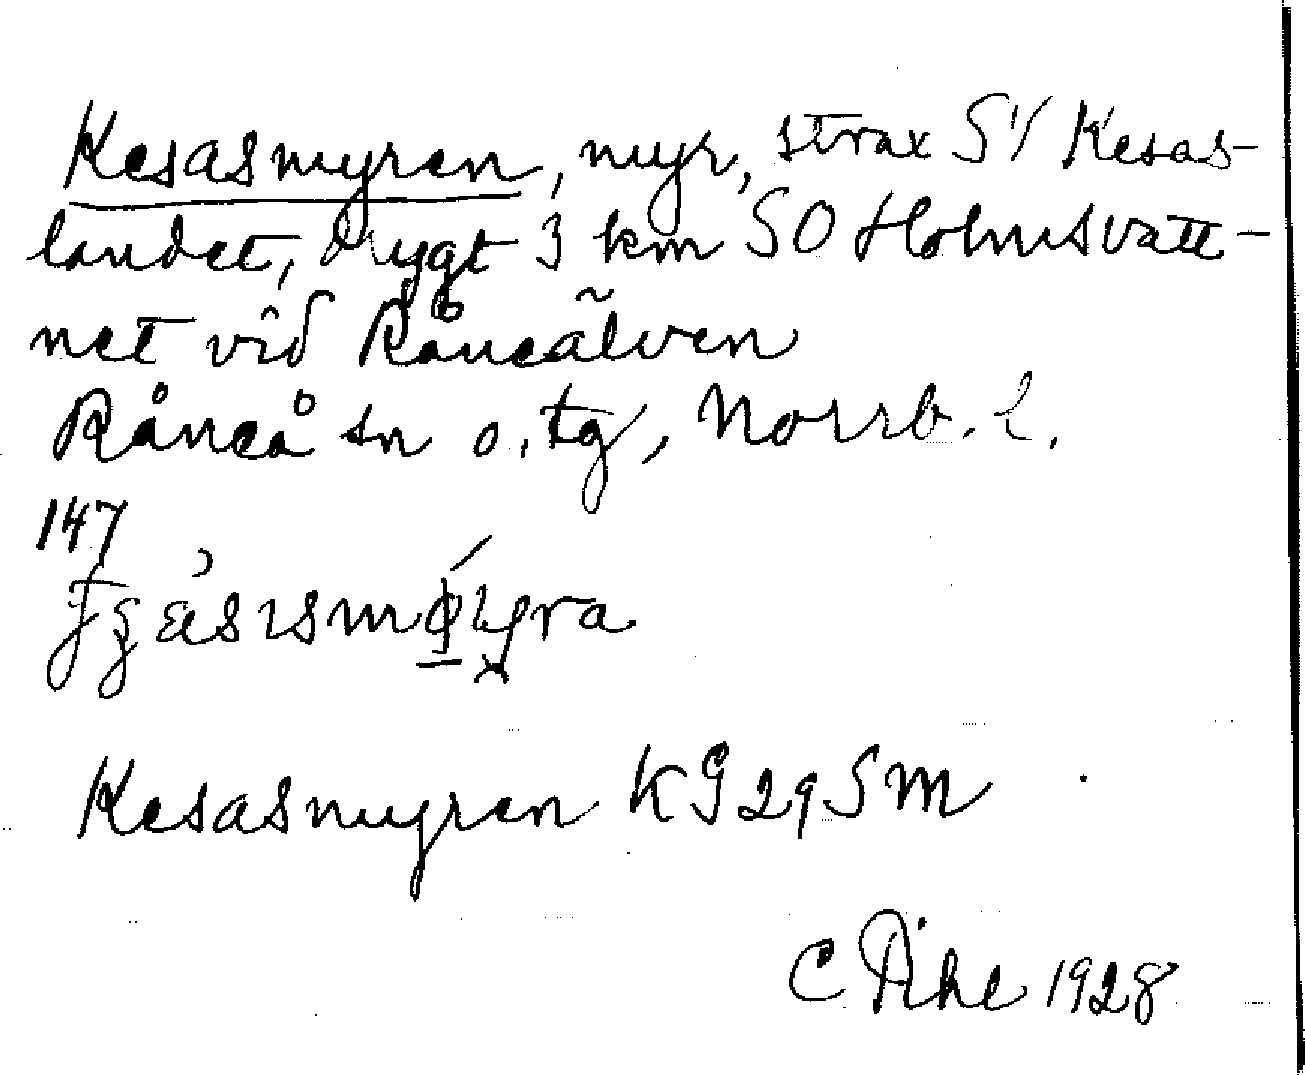 Kesasmyren, myr, strax S/ Kesas-
landet, drygt 3 km SO Holmsvatt-
net vid Råneälven
Råneå sn o. tg, Norrb. l.
147
Kesasmyren K G 29 S M
C 1928